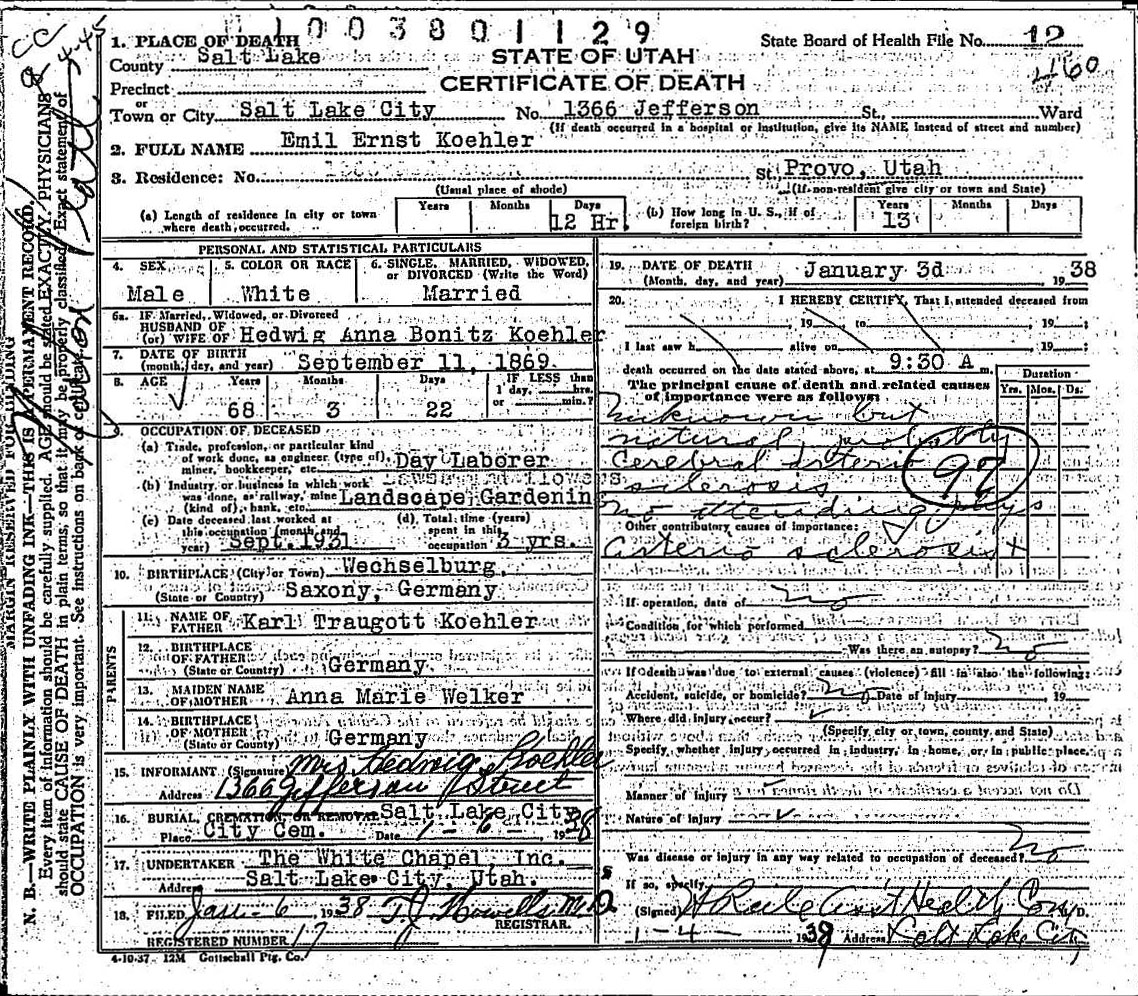 1003801129
1. PLACE OF DEATH
STATE OF UTAH
State Board of Health File No. 12
County Salt Lake
460
CERTIFICATE OF DEATH
Precinct
or
Town or City Salt Lake City No. 1366 Jefferson St., Ward
(If death occurred in a hospital or institution, give its NAME instead of street and number)
2. FULL NAME Emil Ernst Koehler
3. Residence: No. St. Provo, Utah
(Usual place of abode) (If non-resident give city or town and State)
(a) Length of residence in city or town where death occurred. Years Months Days 12 Hr.
(b) How long in U. S., if of foreign birth? Years 13 Months Days
PERSONAL AND STATISTICAL PARTICULARS
4. SEX Male
5. COLOR OR RACE White
6. SINGLE, MARRIED, WIDOWED, or DIVORCED (Write the Word) Married
6a. IF Married, Widowed, or Divorced
HUSBAND OF
(or) WIFE OF Hedwig Anna Bonitz Koehler
7. DATE OF BIRTH
(month, day, and year) September 11, 1869.
8. AGE Years 68 Months 3 Days 22 IF LESS than 1 day, hrs. or min.?
9. OCCUPATION OF DECEASED
(a) Trade, profession, or particular kind
of work done, as engineer (type of),
miner, bookkeeper, etc. Day Laborer
(b) Industry, or business in which work
was done, as railway, mine
(kind of), bank, etc. Landscape Gardenin
(c) Date deceased last worked at
this occupation (month and
year) Sept. 1931
(d) Total time (years)
spent in this
occupation 3 yrs.
10. BIRTHPLACE (City or Town) Wechselburg,
(State or Country) Saxony, Germany
PARENTS
11. NAME OF
FATHER Karl Traugott Koehler
12. BIRTHPLACE
OF FATHER
(State or Country) Germany
13. MAIDEN NAME
OF MOTHER Anna Marie Welker
14. BIRTHPLACE
OF MOTHER
(State or Country) Germany
15. INFORMANT (Signature Mrs Hedwig Koehler
Address 1366 Jefferson Street
16. BURIAL, CREMATION, OR REMOVAL Salt Lake City
Place City Cem. Date 1-6- 1938
17. UNDERTAKER The White Chapel, Inc.
Address Salt Lake City, Utah.
18. FILED Jan-6 1938 T.J. Howells M.D.
REGISTRAR.
REGISTERED NUMBER 17
4-10-37 12M Gottschall Ptg. Co.
19. DATE OF DEATH January 3d 1938
(Month, day, and year)
20. I HEREBY CERTIFY, That I attended deceased from
, 19 to , 19 ;
I last saw h alive on , 19 ;
death occurred on the date stated above, at 9:30 A m.
The principal cause of death and related causes
of importance were as follows:
Duration
Yrs. Mos. Ds.
unknown but
natural, probably
Cerebral arterio
sclerosis
97
no attending phys
Other contributory causes of importance:
arterio sclerosis +
If operation, date of no
Condition for which performed
Was there an autopsy? no
If death was due to external causes (violence) fill in also the following:
Accident, suicide, or homicide? no Date of injury 19
Where did injury occur?
(Specify city or town, county and State)
Specify whether injury occurred in industry, in home, or in public place.
Manner of injury
Nature of injury
Was disease or injury in any way related to occupation of deceased? no
If so, specify
(Signed) Health Com M.D.
1-4- 1938 Address Salt Lake City
MARGIN RESERVED FOR BINDING
N. B.—WRITE PLAINLY WITH UNFADING INK—THIS IS A PERMANENT RECORD.
Every item of information should be carefully supplied. AGE should be stated EXACTLY. PHYSICIANS
should state CAUSE OF DEATH in plain terms, so that it may be properly classified. Exact statement of
OCCUPATION is very important. See instructions on back of certificate.